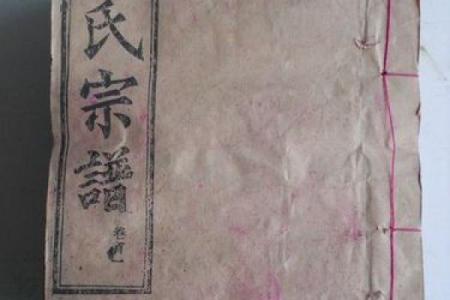 氏宗譜
卷首